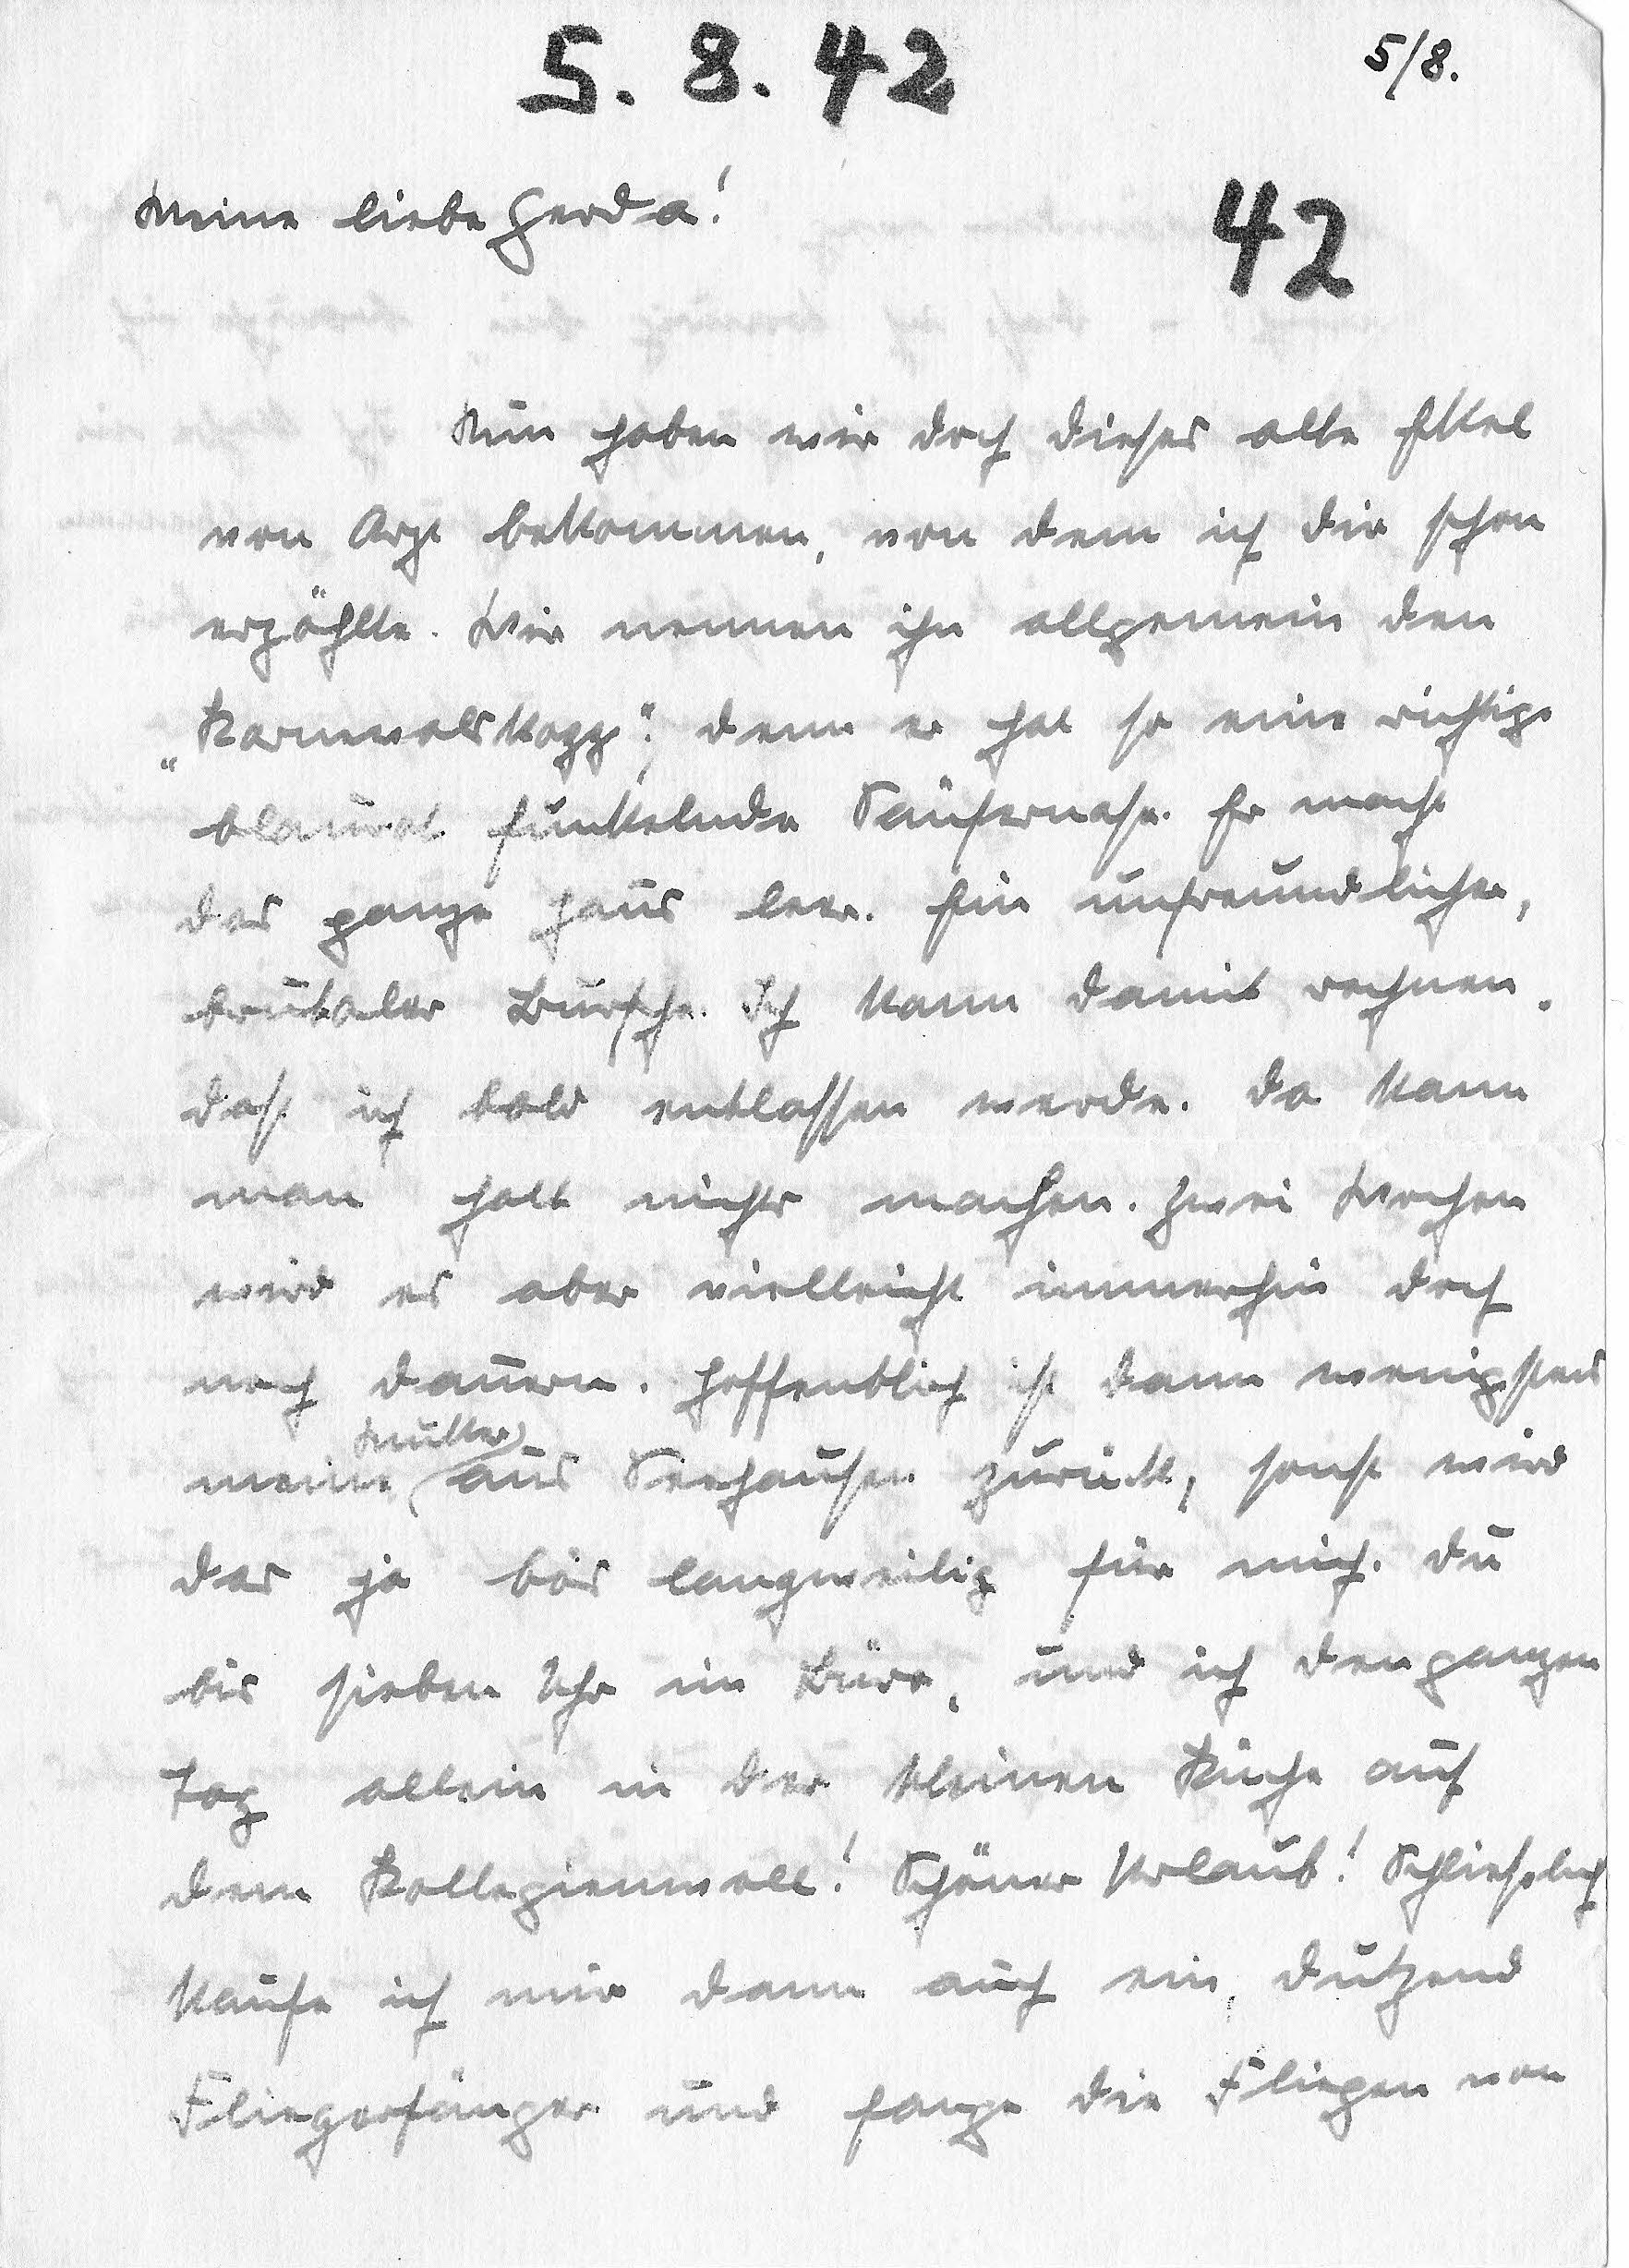 5. 8. 42
5/8.
Meine liebe Gerda!
42
Nun haben wir doch dieses alte Ekel
von Arzt bekommen, von dem ich dir schon
erzählte. Wir nennen ihn allgemein den
„Karnevalskopp", denn er hat so eine richtige
blaurot funkelnde Säufernase. Er macht
das ganze Haus leer. Ein unfreundlicher,
brutaler Bursche. Ich kann damit rechnen,
dass ich bald entlassen werde. Da kann
man halt nichts machen. Zwei Wochen
wird es aber vielleicht immerhin doch
noch dauern. Hoffentlich ist dann wenigstens
Mutter
meine aus Seehausen zurück, sonst wird
das ja bös langweilig für mich. Du
bis sieben Uhr im Büro, und ich den ganzen
Tag allein in der kleinen Küche auf
dem Kollegienwall! Schöner Urlaub! Schliesslich
kaufe ich mir dann auch ein, dutzend
Fliegerfänger und fange die Fliegen von